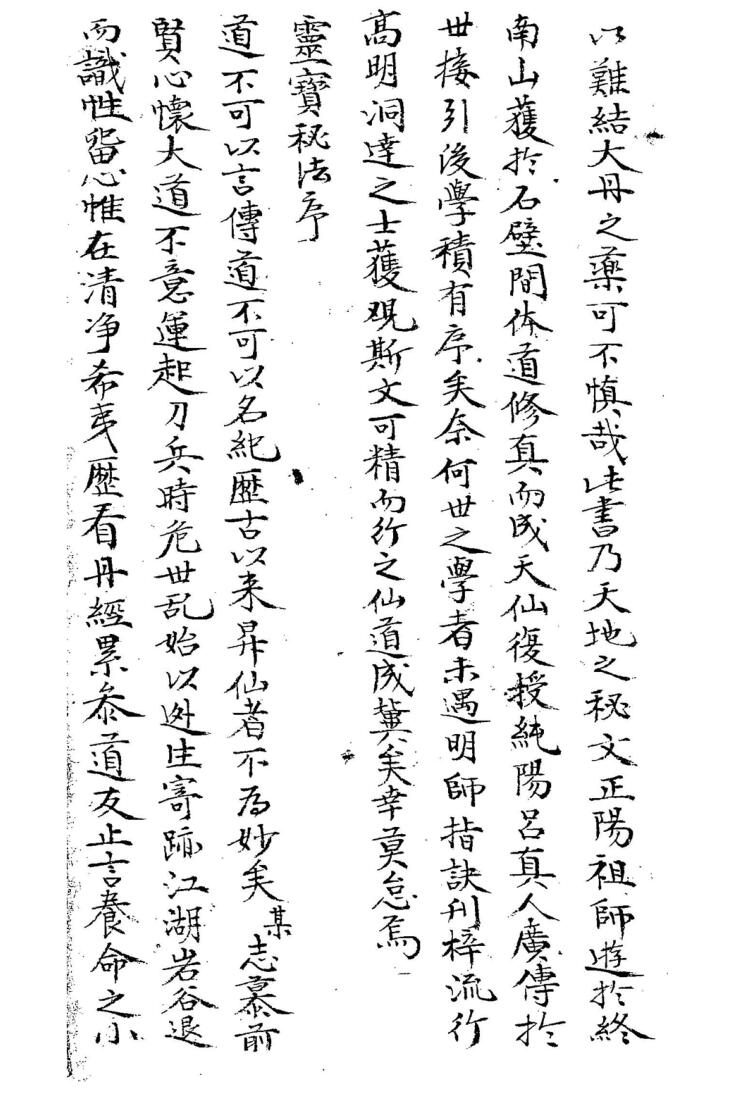 以難結大丹之藥可不慎哉此書乃天地之秘文正陽祖師遊於終
南山獲於石壁間体道修真而成天仙復授純陽呂真人廣傳於
世接引後學積有序矣奈何世之學者未遇明師指訣刋梓流行
高明洞達之士獲覌斯文可精而行之仙道成冀矣幸莫怠焉
靈寶秘法序
道不可以言傳道不可以名紀歷古以来昇仙者不為妙矣某志慕前
賢心懷大道不意運起刀兵時危世乱始以迯生寄跡江湖岩谷退
而識性留心惟在清净希夷歷看丹經累叅道友止言養命之小